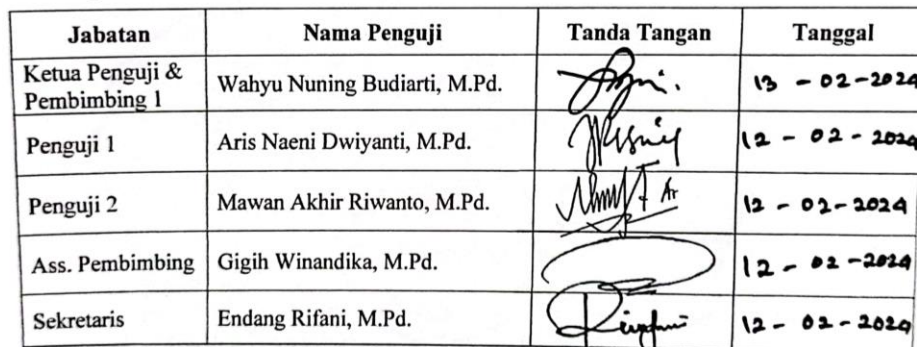 Jabatan Nama Penguji Tanda Tangan Tanggal
Ketua Penguji &
Pembimbing 1 Wahyu Nuning Budiarti, M.Pd. 13 - 02-2024
Penguji 1 Aris Naeni Dwiyanti, M.Pd. 12 - 02 - 2024
Penguji 2 Mawan Akhir Riwanto, M.Pd. 12 - 02-2024
Ass. Pembimbing Gigih Winandika, M.Pd. 12 - 02 -2024
Sekretaris Endang Rifani, M.Pd. 12 - 02 - 2024